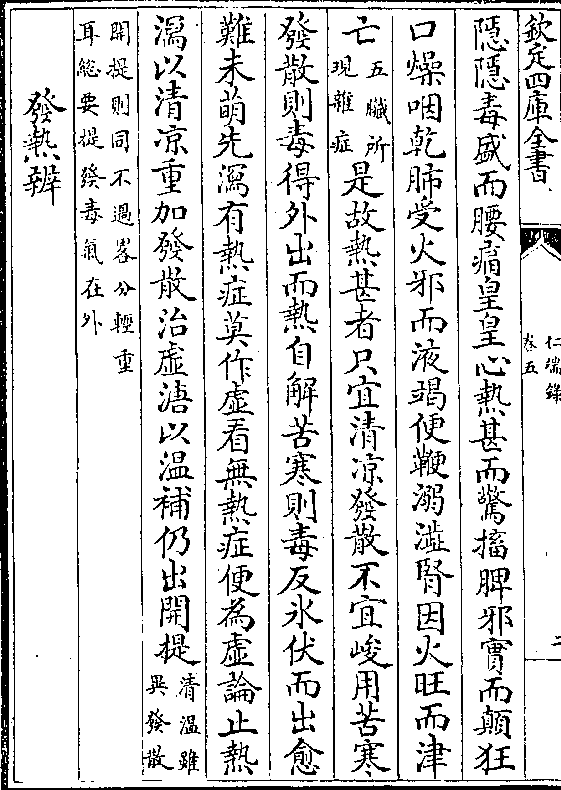 欽定四庫全書
仁端錄
卷五
隱隱毒盛而腰痛皇皇心熱甚而驚搐脾邪實而顛狂
口燥咽乾肺受火邪而液竭便鞕溺澁腎因火旺而津
亡五臟所現雜症是故熱甚者只宜清凉發散不宜峻用苦寒
發散則毒得外出而熱自解苦寒則毒反氷伏而出愈
難未萌先瀉有熱症莫作虛看無熱症便為虛論止熱
瀉以清凉重加發散治虛溏以温補仍出開提清温雖異發散
開提則同不過畧分輕重耳總要提發毒氣在外
發熱辨